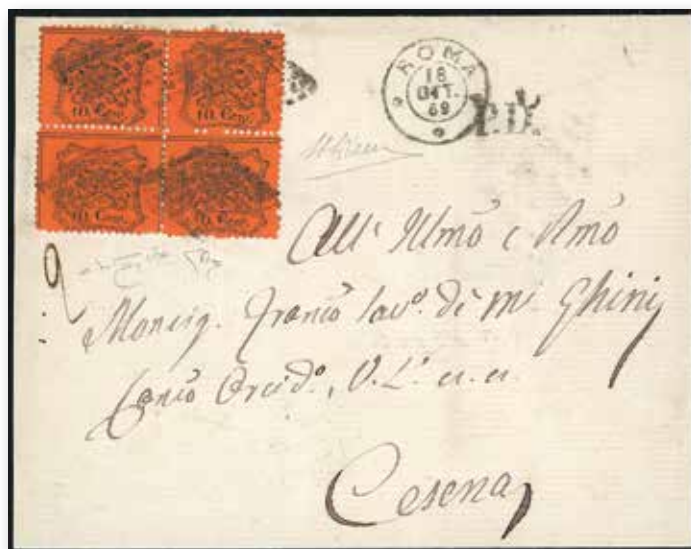 10 Cent. 10 Cent.
10 Cent. 10 Cent.
ROMA
18
OTT.
69
P.D.
All' Illmõ e Rmõ
Monsig. Franco Cavº. de Mi Ghini
Canco Arcidº.
Cesena